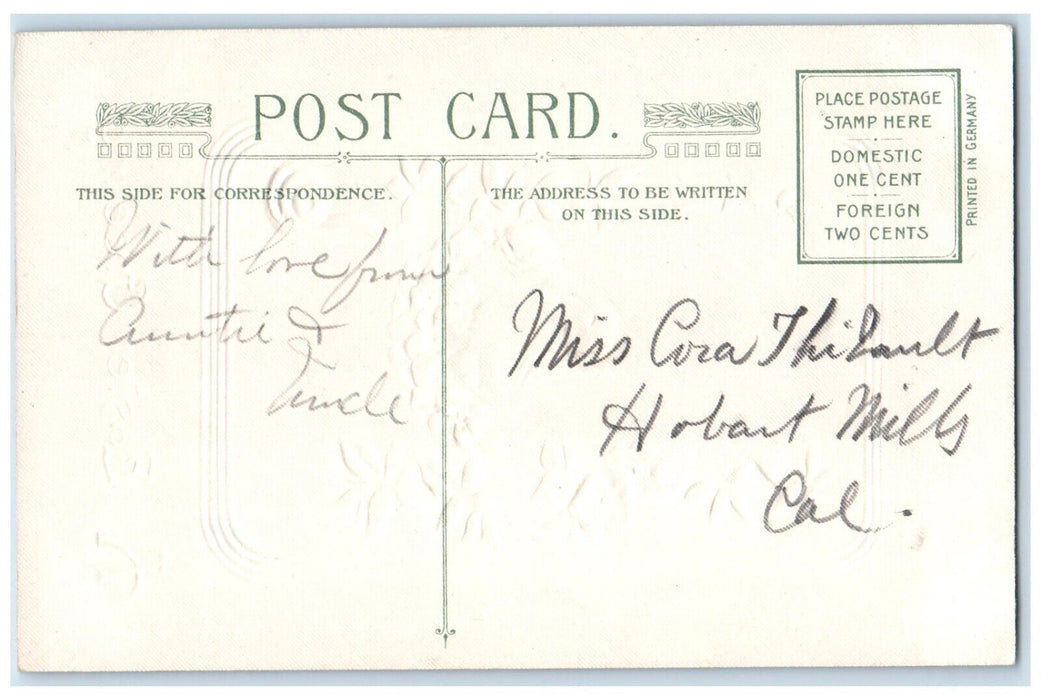 POST CARD.
THIS SIDE FOR CORRESPONDENCE.
With love from
Auntie &
Uncle
THE ADDRESS TO BE WRITTEN
ON THIS SIDE.
PLACE POSTAGE
STAMP HERE
DOMESTIC
ONE CENT
FOREIGN
TWO CENTS
PRINTED IN GERMANY
Miss Cora Thibault
Hobart Mills
Cal.